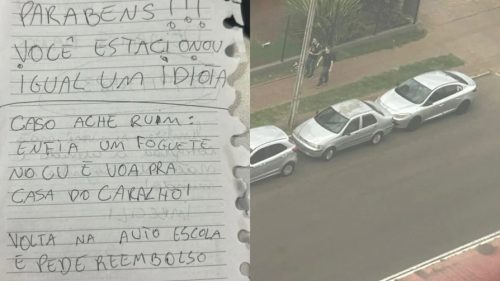 PARABENS !!!
VOCÊ ESTACIONOU
IGUAL UM IDIOIA
CASO ACHE RUIM:
ENFIA UM FOGUETE
NO CU E VOA PRA
CASA DO CARALHO!
VOLTA NA AUTO ESCOLA
E PEDE REEMBOLSO